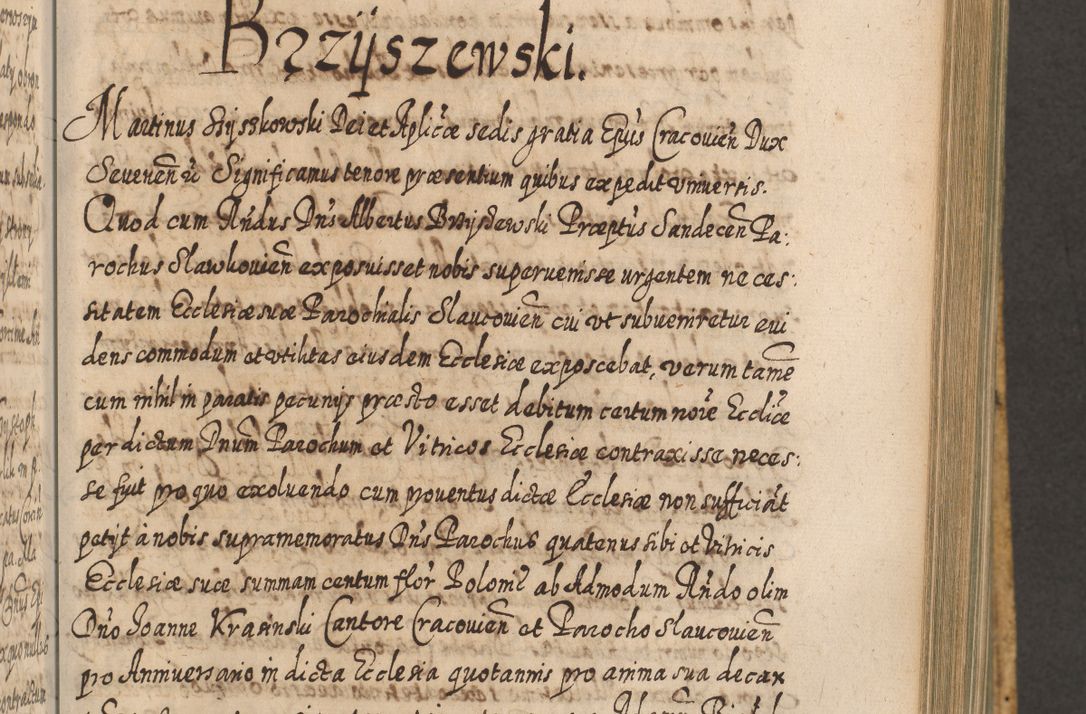 Brzyszewski.
Martinus Szyszkowski Dei et Aplicæ sedis gratia Epus Cracovien Dux
Severien Significamus tenore præsentium quibus expedit universis.
Quod cum Rndus Dns Albertus Brzyszewski Præptus Sandecen Pa:
rochus Slawkovien exposuisset nobis supervenisse urgentem neces:
sitatem Ecclesiæ suæ Parochialis Slaucovien cui ut subveniretur evi
dens commodum et utilitas eiusdem Ecclesiæ exposcebat, verum tame
cum nihil in paratis pecunijs præsto esset debitum certum noie Ecclice
per dictum Dnum Parochum et Vitricos Ecclesiæ contraxisse neces:
se fuit pro quo exolvendo cum proventus dictæ Ecclesiæ non sufficiat
petijt à nobis supramemoratus Dns Parochus quatenus sibi et Vitricis
Ecclesiæ suæ summam centum flor Poloni ab Admodum Rndo olim
Dno Joanne Krasinski Cantore Cracovien et Parocho Slaucovien
pro Anniversario in dicta Ecclesia quotannis pro anima sua decan